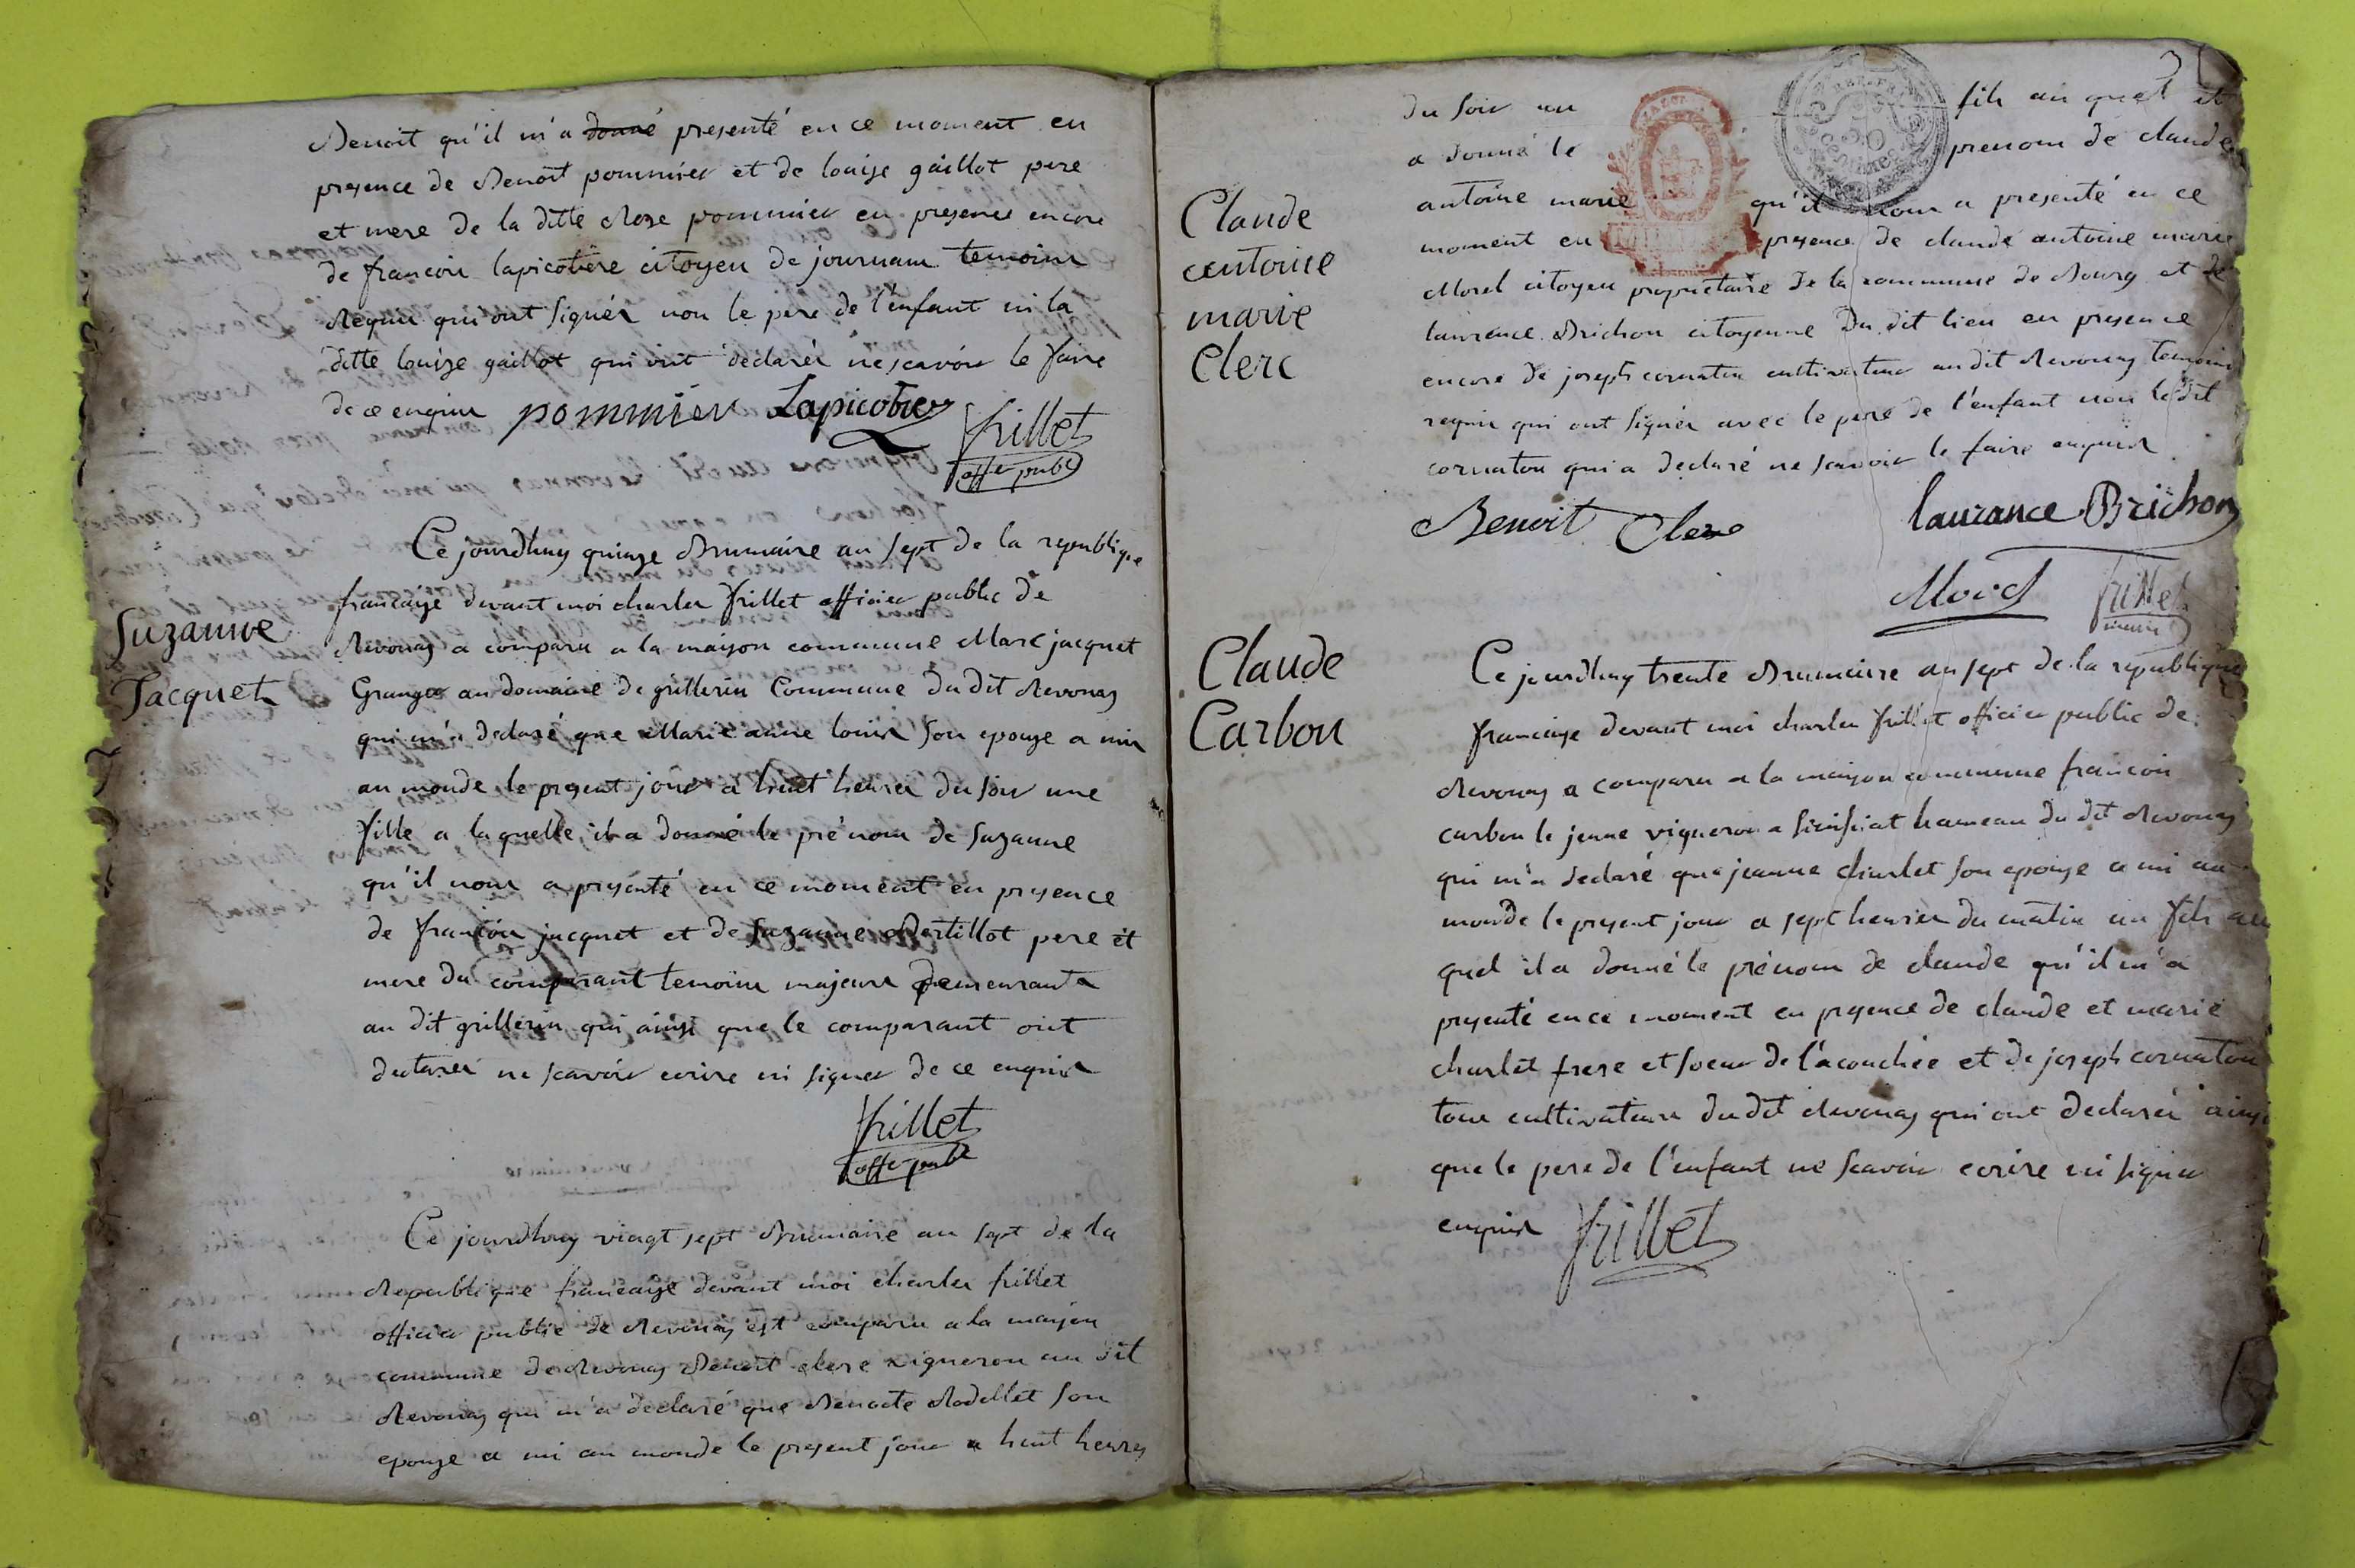 Benoit qu'il m'a donné presenté en ce moment en
presence de Benoit pommier et de louise gaillot pere
et mere de la ditte Rose pommier en presence encore
de francois lapicotiere citoyen de journans temoins
Requis qui ont signés non le pere de l'enfant ni la
ditte louise gaillot qui ont declarés ne scavoir le faire
de ce enquis pommier Lapicotiere
frillet
offr publ
Suzanne
Jacquet
Ce jourdhuy quinze Brumaire an sept de la republique
francaise devant moi charles frillet officier public de
Revonas a comparu a la maison commune Marc jacquet
Granger au domaine de grillerin Commune du dit Revonas
qui m'a declaré que Marie anne louis son epouse a mis
au monde le present jour a huit heures du soir une
fille a laquelle il a donné le prénom de Suzanne
qu'il nous a presenté en ce moment en presence
de francois jacquet et de suzanne Bertillot pere et
mere du comparant temoins majeurs demeurants
au dit grillerin qui ainsi que le comparant ont
declarés ne scavoir ecrire ni signer de ce enquis
frillet
offr publ
Ce jourdhuy vingt sept Brumaire an sept de la
Republique francaise devant moi charles frillet
officier public de Revonas est comparu a la maison
commune de Revonas Benoit clerc vigneron au dit
Revonas qui m'a declaré que Benoite Rodellet son
epouse a mis au monde le present jour a huit heures
Claude
antoine
marie
Clerc
du soir un fils au quel il
a donné le prenom de claude
antoine marie qu'il nous a presenté en ce
moment en presence de claude antoine marie
Morel citoyen propriétaire de la commune de Bourg et de
laurance Brichon citoyenne du dit lieu en presence
encore de joseph cornaton cultivateur au dit Revonas temoins
requis qui ont signés avec le pere de l'enfant non le dit
cornaton qui a declaré ne scavoir le faire enquis
Benoit Clerc laurance Brichon
Morel frillet
Claude
Carbon
Ce jourdhuy trente Brumaire an sept de la republique
francaise devant moi charles frillet officier public de
Revonas a comparu a la maison commune francois
carbon le jeune vigneron a hameau du dit Revonas
qui m'a declaré que jeanne charlet son epouse a mis au
monde le present jour a sept heures du matin un fils au
quel il a donné le prénom de claude qu'il m'a
presenté en ce moment en presence de claude et marie
charlet frere et soeur de l'acouchée et de joseph cornaton
tous cultivateurs du dit Revonas qui ont declarés ainsi
que le pere de l'enfant ne scavoir ecrire ni signer
enquis frillet